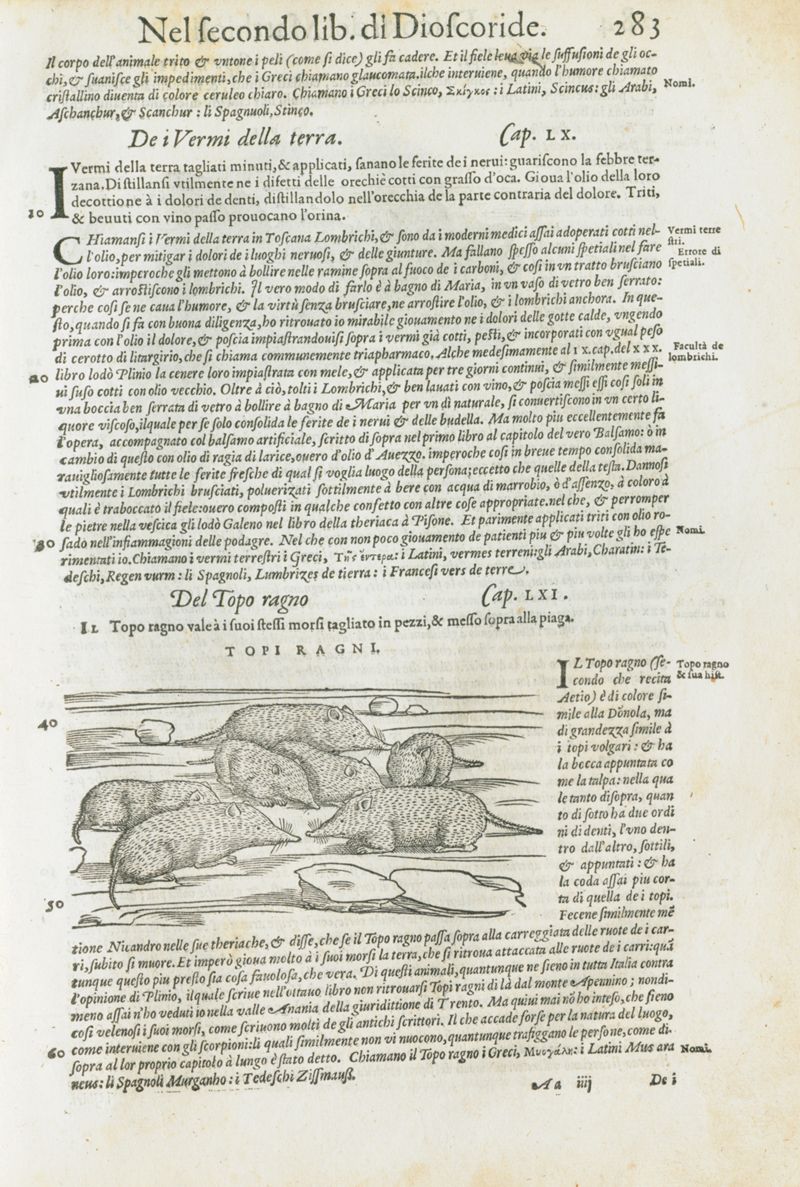 Nel ſecondo lib. di Dioſcoride. 283
Il corpo dell'animale trito & vntone i peli (come ſi dice) gli fà cadere. Et il fiele leua via le ſuffuſioni de gli oc-
chi, & ſuaniſce gli impedimenti, che i Greci chiamano glaucomata. ilche interuiene, quando l'humore chiamato
criſtallino diuenta di colore ceruleo chiaro. Chiamano i Greci lo Scinco, Σκίγκος: i Latini, Scincus: gli Arabi,
Nomi.
Aſchanchur, & Scanchur: li Spagnuoli, Stinço.
De i Vermi della terra. Cap. LX.
I Vermi della terra tagliati minuti, & applicati, ſanano le ferite de i nerui: guariſcono la febbre ter-
zana. Diſtillanſi vtilmente ne i difetti delle orechie cotti con graſſo d'oca. Gioua l'olio della loro
decottione à i dolori de denti, diſtillandolo nell'orecchia de la parte contraria del dolore. Triti,
10 & beuuti con vino paſſo prouocano l'orina.
CHiamanſi i Vermi della terra in Toſcana Lombrichi, & ſono da i moderni medici aſſai adoperati cotti nel-
Vermi terre
ſtri.
l'olio, per mitigar i dolori de i luoghi neruoſi, & delle giunture. Ma fallano ſpeſſo alcuni ſpetiali nel fare
Errore di
ſpetiali.
l'olio loro: imperoche gli mettono à bollire nelle ramine ſopra al fuoco de i carboni, & coſi in vn tratto bruſciano
l'olio, & arroſtiſcono i lombrichi. Il vero modo di farlo è à bagno di Maria, in vn vaſo di vetro ben ſerrato:
perche coſi ſe ne caua l'humore, & la virtù ſenza bruſciare, ne arroſtire l'olio, & i lombrichi anchora. In que-
ſto, quando ſi fà con buona diligenza, ho ritrouato io mirabile giouamento ne i dolori delle gotte calde, vngendo
prima con l'olio il dolore, & poſcia impiaſtrandouiſi ſopra i vermi già cotti, peſti, & incorporati con vgual peſo
di cerotto di litargirio, che ſi chiama communemente triapharmaco, Alche medeſimamente al ix. cap. del xxx.
Facultà de
lombrichi.
20 libro lodò Plinio la cenere loro impiaſtrata con mele, & applicata per tre giorni continui, & ſimilmente meſſi-
ui ſuſo cotti con olio vecchio. Oltre à ciò, tolti i Lombrichi, & ben lauati con vino, & poſcia meſſi eſſi coſi ſoli in
vna boccia ben ſerrata di vetro à bollire à bagno di Maria per vn dì naturale, ſi conuertiſcono in vn certo li-
quore viſcoſo, ilquale per ſe ſolo conſolida le ferite de i nerui & delle budella. Ma molto piu eccellentemente fà
l'opera, accompagnato col balſamo artificiale, ſcritto di ſopra nel primo libro al capitolo del vero Balſamo: ò in
cambio di queſto con olio di ragia di larice, ouero d'olio d'Auezzo. imperoche coſi in breue tempo conſolida ma-
rauiglioſamente tutte le ferite freſche di qual ſi voglia luogo della perſona; eccetto che quelle della teſta. Dannoſi
vtilmente i Lombrichi bruſciati, poluerizati ſottilmente à bere con acqua di marrobio, ò d'aſſenzo, à coloro à
quali è traboccato il fiele: ouero compoſti in qualche confetto con altre coſe appropriate. nel che, & per romper
le pietre nella veſcica gli lodò Galeno nel libro della theriaca à Piſone. Et parimente applicati triti con olio ro-
30 ſado nell'infiammagioni delle podagre. Nel che con non poco giouamento de patienti piu & piu volte gli ho eſpe
Nomi.
rimentati io. Chiamano i vermi terreſtri i Greci, Τῆς ἔντερα: i Latini, vermes terreni: gli Arabi, Charatin: i Te-
deſchi, Regen vurm: li Spagnoli, Lumbrizes de tierra: i Franceſi vers de terre.
Del Topo ragno Cap. LXI.
IL Topo ragno vale à i ſuoi ſteſſi morſi tagliato in pezzi, & meſſo ſopra alla piaga.
TOPI RAGNI.
IL Topo ragno (ſe-
Topo ragno
& ſua hiſt.
condo che recita
Aetio) è di colore ſi-
40 mile alla Donola, ma
di grandezza ſimile à
i topi volgari: & ha
la bocca appuntata co
me la talpa: nella qua
le tanto di ſopra, quan
to di ſotto ha due ordi
ni di denti, l'vno den-
tro dall'altro, ſottili,
& appuntati: & ha
la coda aſſai piu cor-
50 ta di quella de i topi.
Fecene ſimilmente mē
tione Nicandro nelle ſue theriache, & diſſe, che ſe il Topo ragno paſſa ſopra alla carreggiata delle ruote de i car-
ri, ſubito ſi muore. Et imperò gioua molto à i ſuoi morſi la terra, che ſi ritroua attaccata alle ruote de i carri: quā
tunque queſto piu preſto ſia coſa fauoloſa, che vera. Di queſti animali, quantunque ne ſieno in tutta Italia contra
l'opinione di Plinio, ilquale ſcriue nell'ottauo libro non ritrouarſi Topi ragni di là dal monte Apennino; nondi-
meno aſſai n'ho veduti io nella valle Anania della giuridittione di Trento. Ma quiui mai nō ho inteſo, che ſieno
coſi velenoſi i ſuoi morſi, come ſcriuono molti de gli antichi ſcrittori. Il che accade forſe per la natura del luogo,
60 come interuiene con gli ſcorpioni: li quali ſimilmente non vi nuocono, quantunque trafiggano le perſone, come di
ſopra al lor proprio capitolo à lungo è ſtato detto. Chiamano il Topo ragno i Greci, Μυογάλη: i Latini Mus ara
Nomi.
neus: li Spagnoli Murganho: i Tedeſchi Ziſſmauſz.
Aa iiij De i